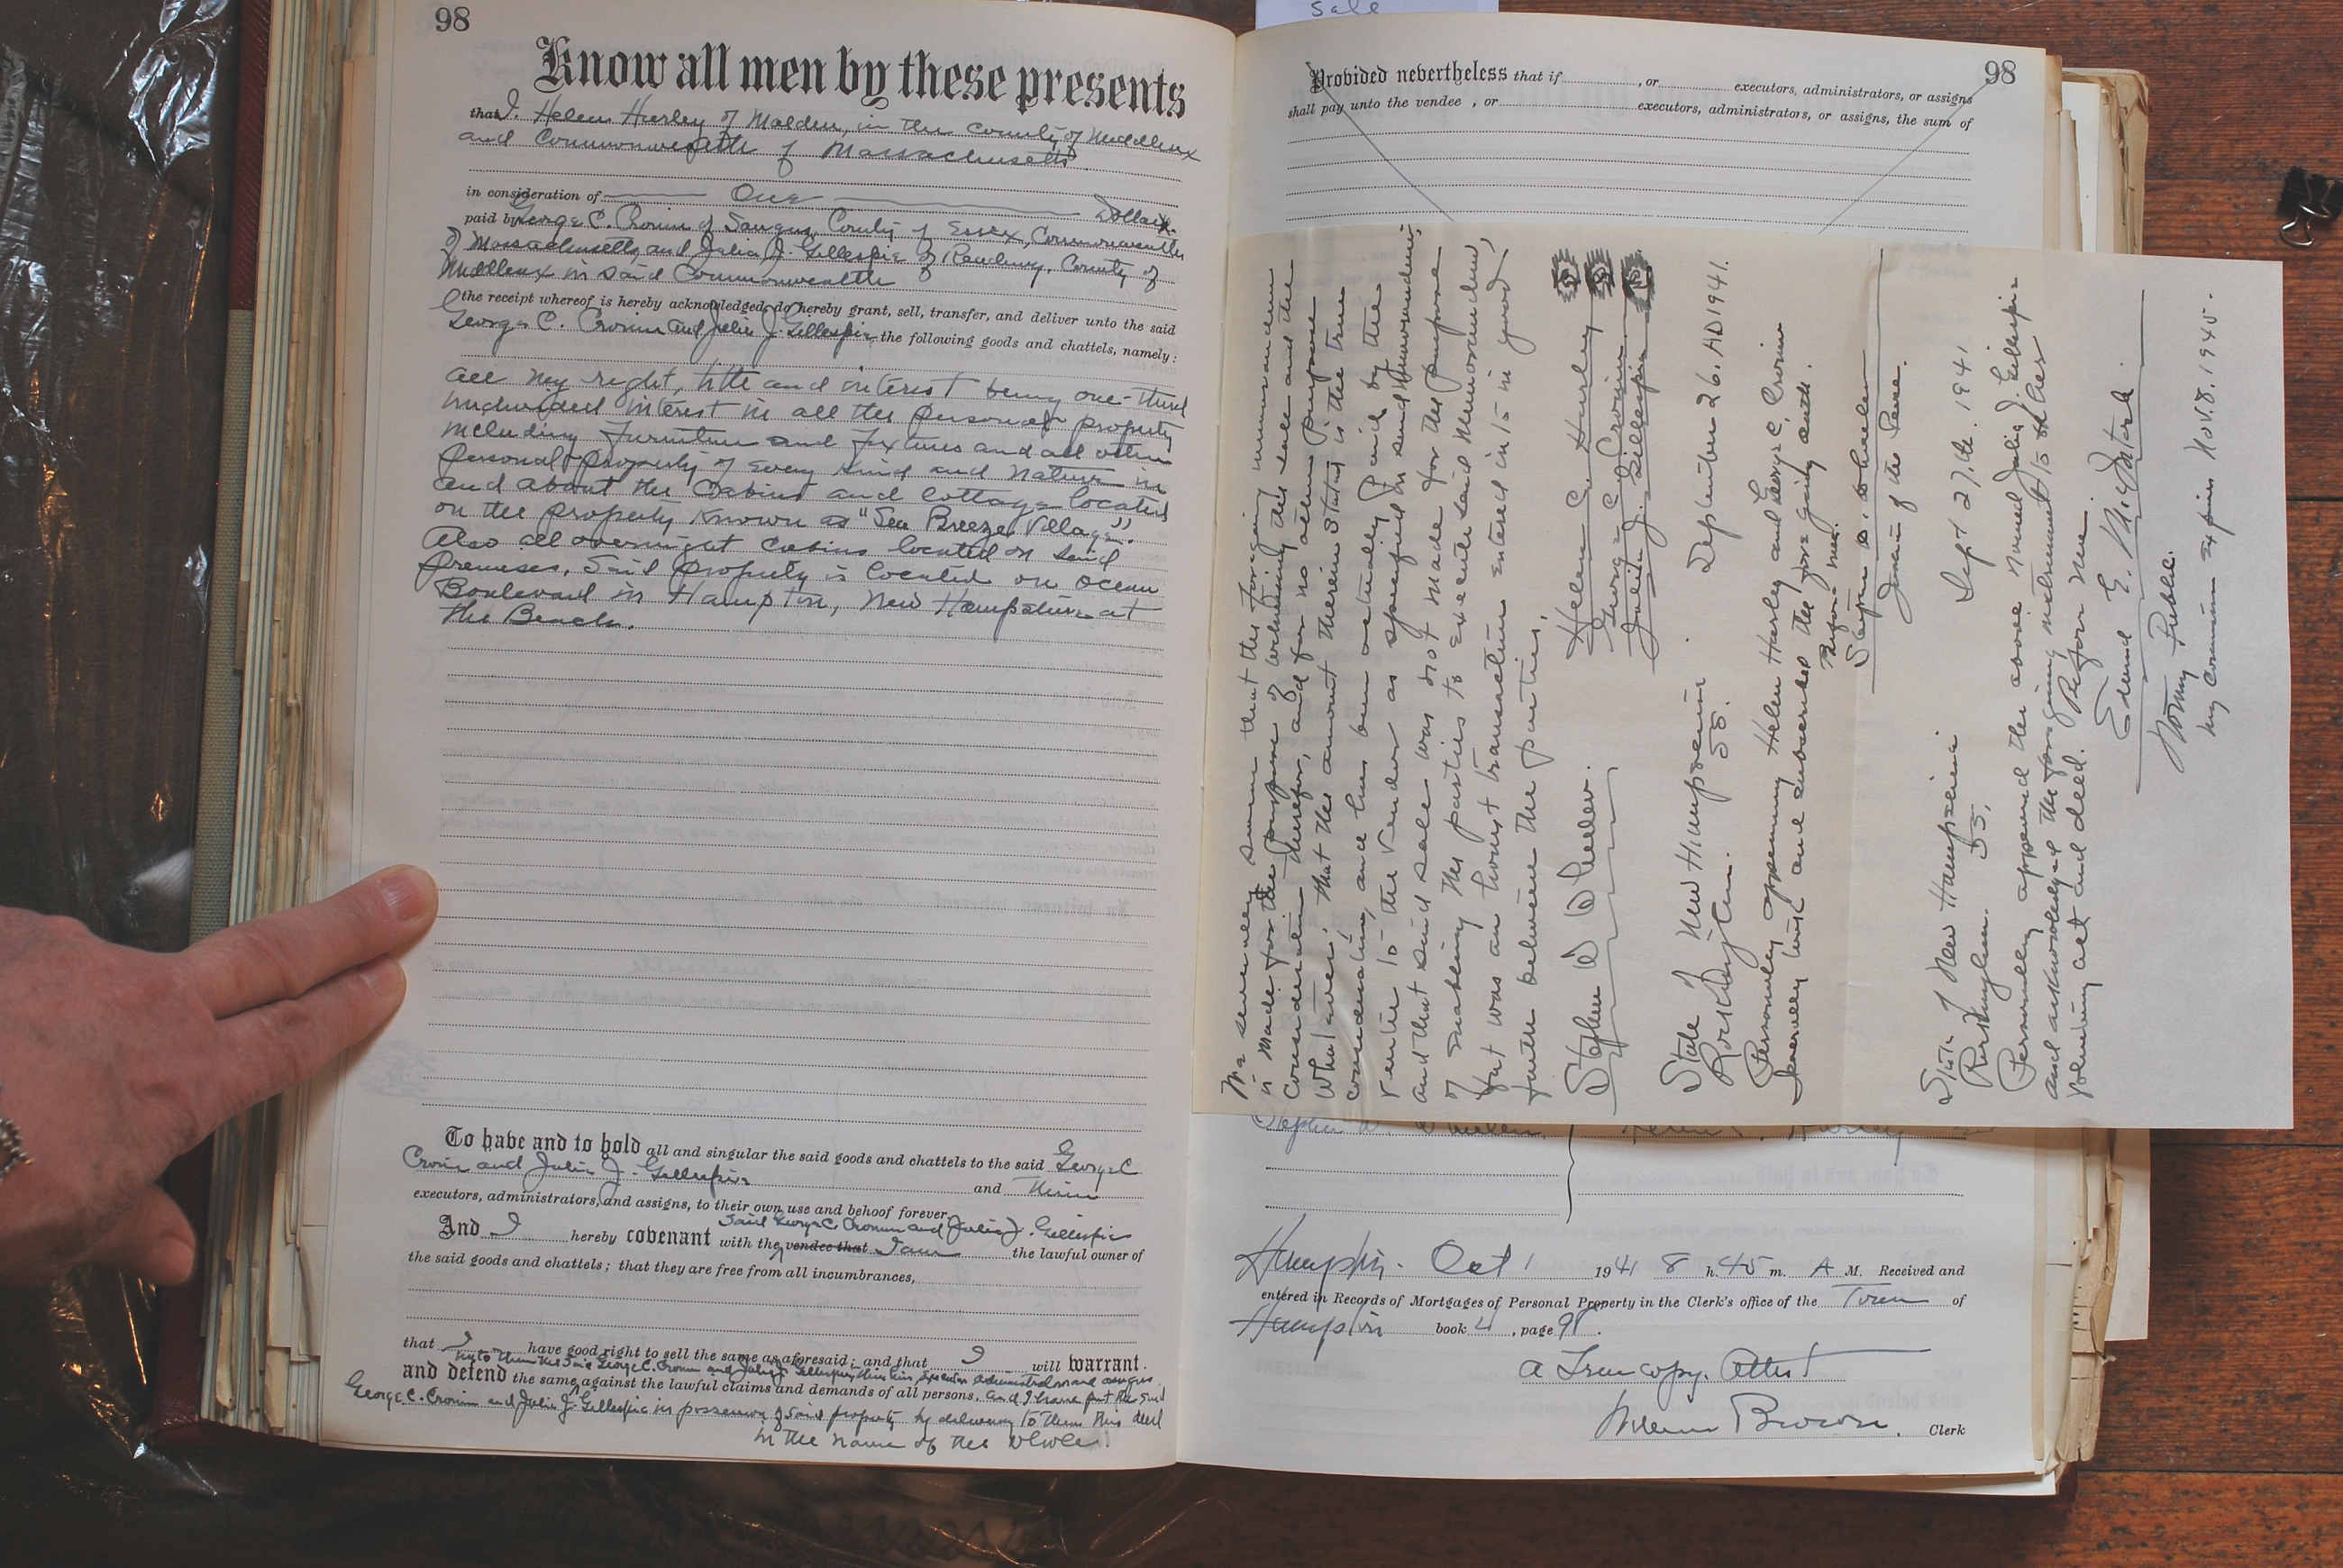 98
Know all men by these presents
that I, Helen Hurley of Malden, in the County of Middlesex
and Commonwealth of Massachusetts
in consideration of One Dollar
paid by George C. Cronin of Saugus, County of Essex, Commonwealth
of Massachusetts, and Julia J. Gillespie of Reading, County of
Middlesex in said Commonwealth
the receipt whereof is hereby acknowledged, do hereby grant, sell, transfer, and deliver unto the said
George C. Cronin and Julia J. Gillespie the following goods and chattels, namely:
All my right, title and interest being one-third
undivided interest in all the personal property
including furniture and fixtures and all other
personal property of every kind and nature in
and about the cabins and cottage located
on the property known as "Sea Breeze Village".
Also all overnight cabins located on said
premises. Said property is located on Ocean
Boulevard in Hampton, New Hampshire at
the Beach.
To have and to hold all and singular the said goods and chattels to the said George C
Cronin and Julia J. Gillespie and Their
executors, administrators, and assigns, to their own use and behoof forever.
said George C. Cronin and Julia J. Gillespie
And I hereby covenant with the vendee that I am the lawful owner of
the said goods and chattels; that they are free from all incumbrances,
that I have good right to sell the same as aforesaid; and that I will warrant
unto them the said George C. Cronin and Julia J. Gillespie, their heirs, executors administrators and assigns
and defend the same against the lawful claims and demands of all persons. And I have put the said
George C. Cronin and Julia J. Gillespie in possession of said property by delivering to them this deed
in the name of the whole.
sale
98
Provided nevertheless that if , or executors, administrators, or assigns
shall pay unto the vendee , or executors, administrators, or assigns, the sum of
We severally swear that the foregoing memorandum
is made for the purpose of witnessing the sale and the
consideration therefor, and for no other purpose
whatever; that the amount therein stated is the true
consideration, and has been actually paid by the
vendee to the vendor as specified in said memorandum;
and that said sale was not made for the purpose
of enabling the parties to execute said memorandum,
but was an honest transaction entered into in good
faith between the parties.
Stephen W. Wheeler. Helen C. Hurley
George C. Cronin
Julia J. Gillespie
State of New Hampshire September 26. AD 1941.
Rockingham. SS.
Personally appearing Helen Hurley and George C. Cronin
severally took and subscribed the foregoing oath.
Before me.
Stephen W. Wheeler
Justice of the Peace.
State of New Hampshire Sept 27th. 1941
Rockingham. SS.
Personally appeared the above named Julia J. Gillespie
and acknowledged the foregoing instrument to be her
voluntary act and deed. Before me.
Edmund E.
Notary Public.
My Commission expires Nov. 8. 1945.
Stephen W. Wheeler. Helen C. Hurley
Hampton. Oct 1 1941 8 h. 45 m. A M. Received and
entered in Records of Mortgages of Personal Property in the Clerk's office of the Town of
Hampton book 4 , page 98.
A True copy. Attest
William Brown. Clerk